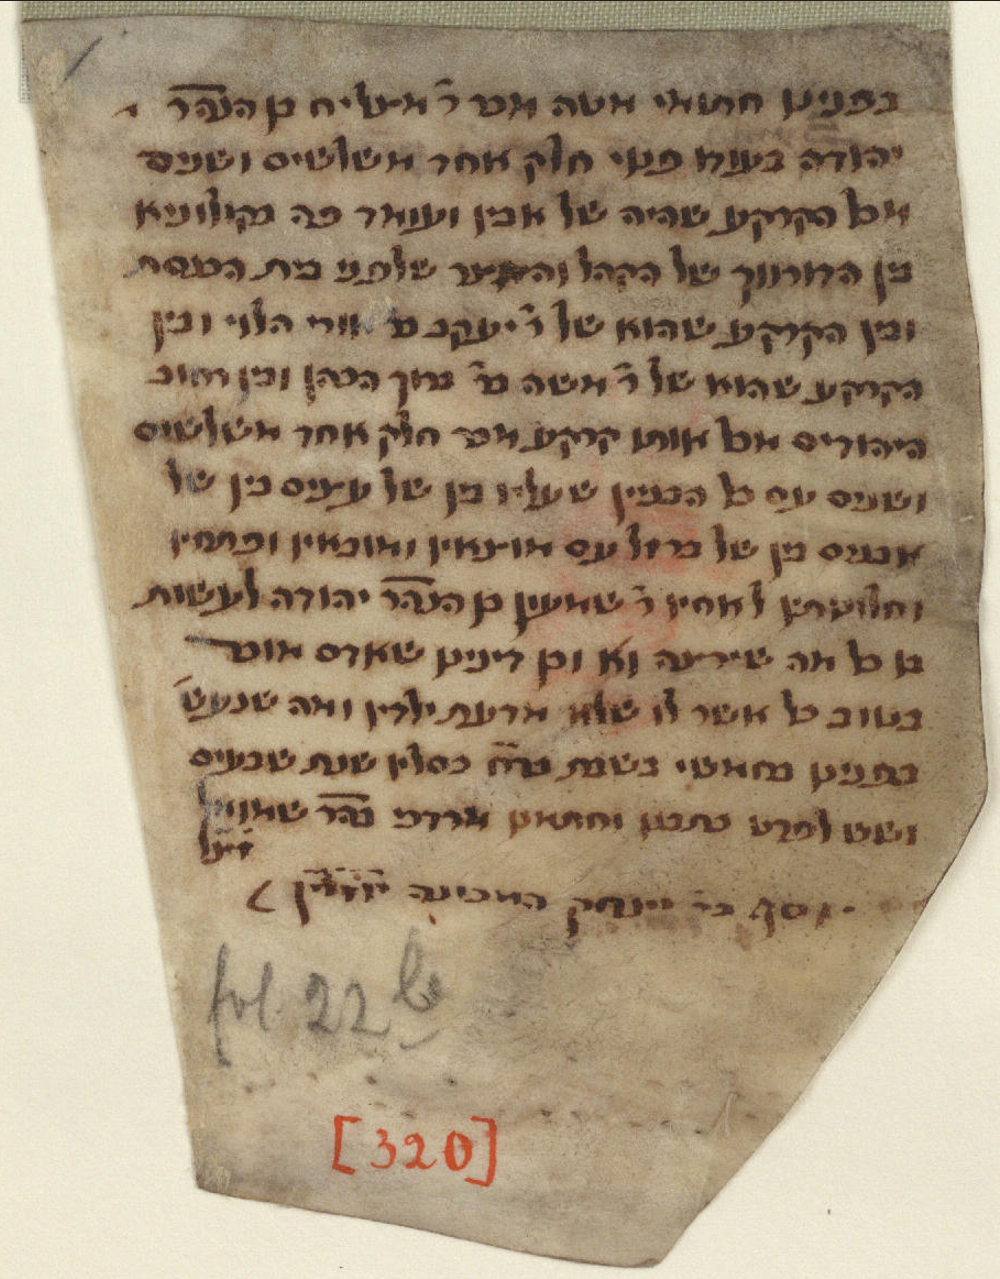 בפנינו חתומי מטה מכר ר' בן הנה"ר
יהודה חלק אחד משלשים ושנים
מכל הקרקע שהיה של אבין ועומד פה בקולוניא
בין הדורווך של הקהל והחצר שלפני בית הכנסת
ובין הקרקע שהוא של ר' יעקב ב' אורי הלוי ובין
הקרקע שהוא של ר' משה בר' ברוך הכהן ובין רחוב
היהודים מכל אותו קרקע מכר חלק אחד משלשים
ושנים עם כל הבניין שעליו בין של עצים בין של
אבנים בין של ברזל עם מוצאין ומובאין ופתחין
וחלונותין לאחיו ר' שמעון בן הנה"ר יהודה לעשות
בו כל מה שירצה דינינו שאדם מוכר
בטוב כל אשר לו שלא מדעת ילדיו ומה שנעש'
בפנינו בחמשי בשבת כסליו שנת שבעים
ושש לפרט כתבנו וחתמנו מרדכי בה"ר שמואל
זצ"ל
יוסף בר' המכונה
fol 22 b
[320]